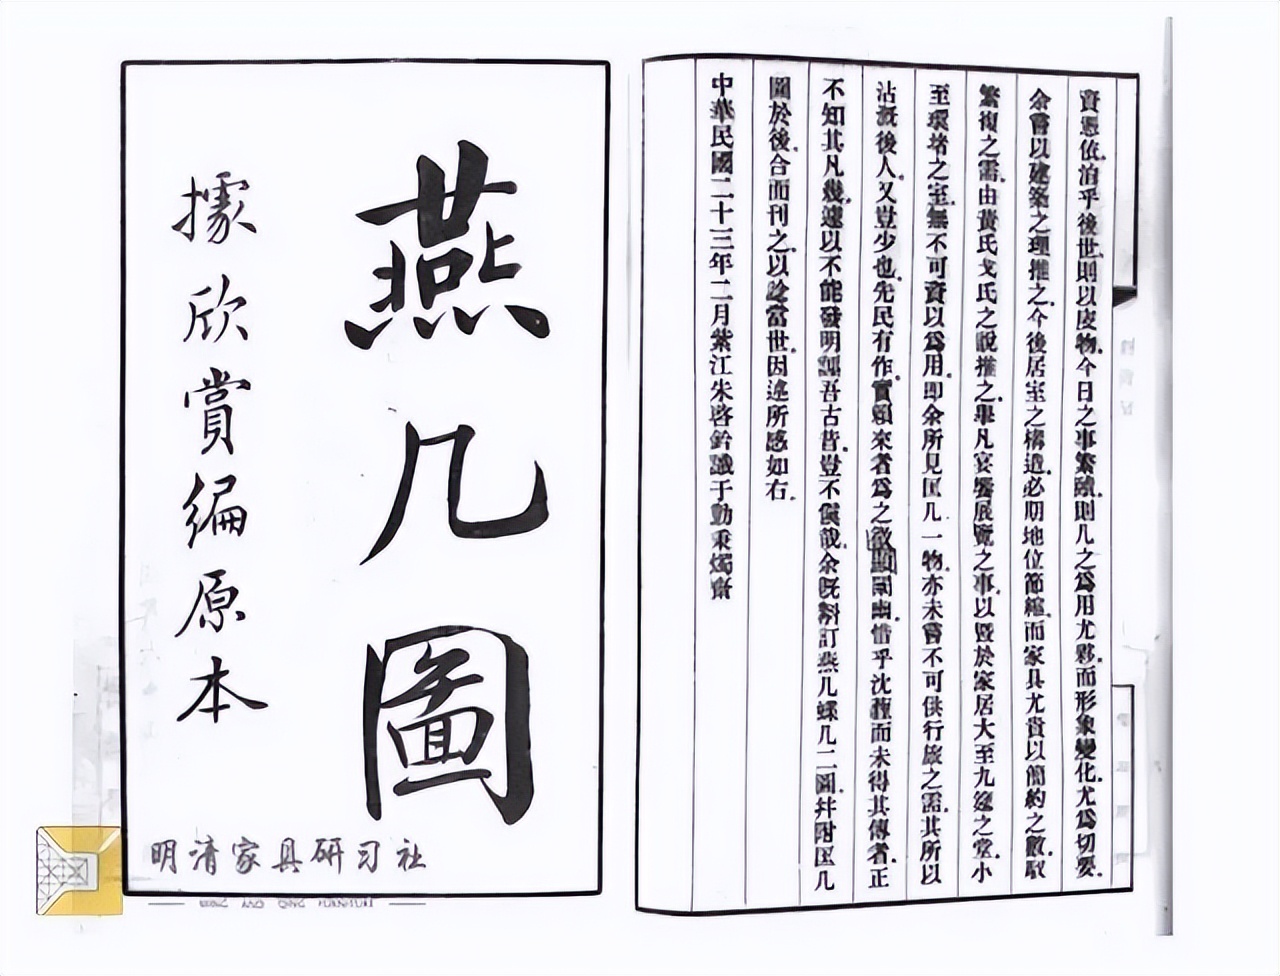 資憑依洎乎後世則以庋物今日之事繁賾則几之為用尤夥而形象變化尤為切要
余嘗以建築之理推之今後居室之構造必期地位節縮而家具尤貴以簡約之數馭
繁複之需由黃氏戈氏之說推之舉凡宴饗展覽之事以暨於家居大至九筵之堂小
至環堵之室無不可資以為用即余所見匡几一物亦未嘗不可供行旅之需其所以
沾溉後人又豈少也先民有作實賴來者為之微顯闡幽惜乎沈薶而未得其傳者正
不知其凡幾遽以不能發明誣吾古昔豈不傎哉余既斠訂燕几蝶几二圖并附匡几
圖於後合而刊之以諗當世因述所感如右
中華民國二十三年二月紫江朱啓鈐識于勤秉燭齋
燕几圖
據欣賞編原本
明清家具研习社